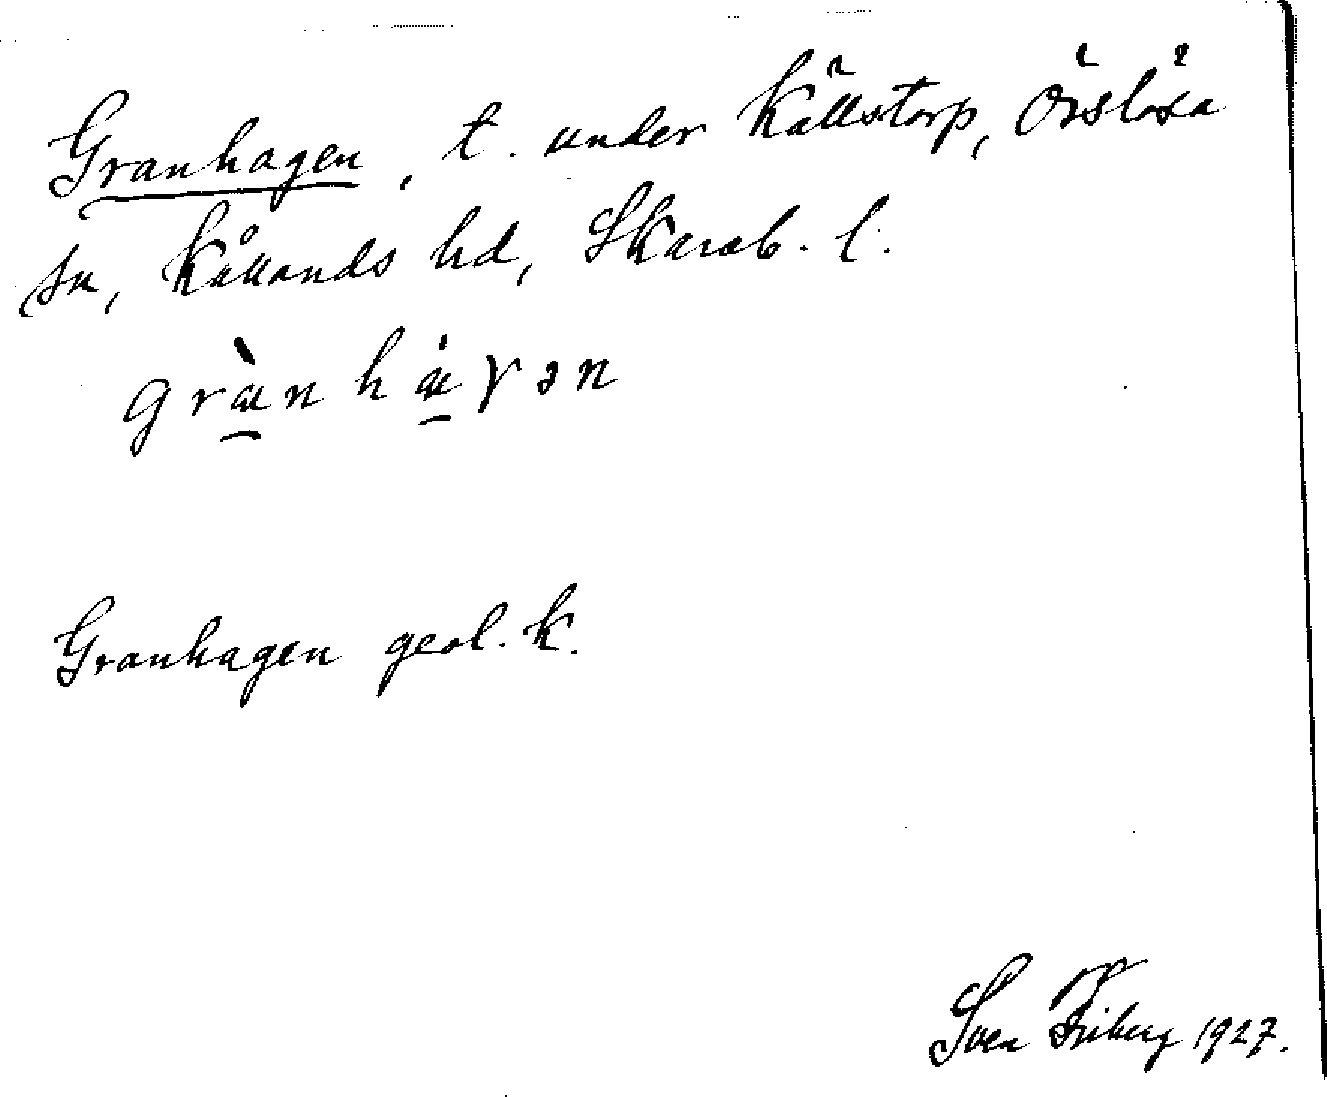 Granhagen, t. under Källstorp, Örslösa
sn, Kållands hd, Skarab. l.
grànháγən
Granhagen geol. k.
Sven Friberg 1927.